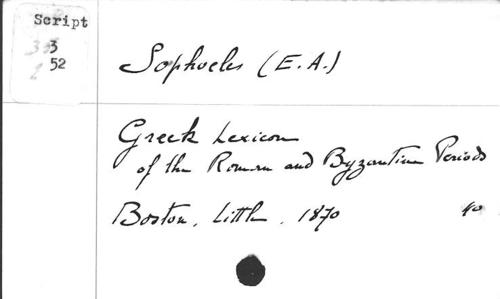 Script
3
52
Sophocles (E.A.)
Greek Lexicon
of the Roman and Byzantine Periods
Boston, Little, 1870 40